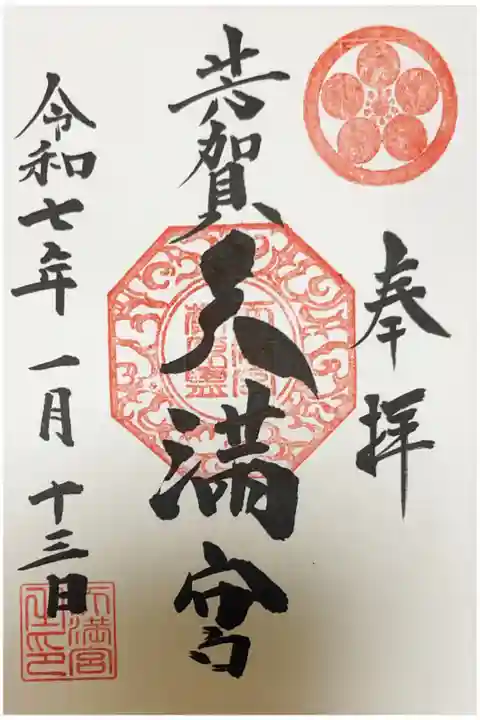 奉拝
芳賀天満宮
令和七年一月十三日
天満宮之印